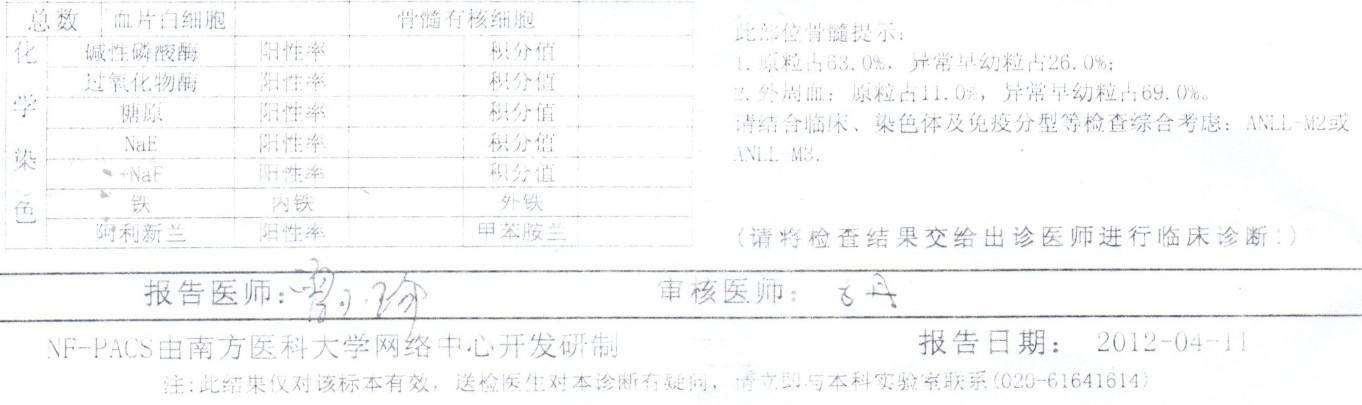 总数 血片白细胞 骨髓有核细胞
化学染色
碱性磷酸酶 阳性率 积分值
过氧化物酶 阳性率 积分值
糖原 阳性率 积分值
NaE 阳性率 积分值
+NaF 阳性率 积分值
铁 内铁 外铁
阿利新兰 阳性率 甲苯胺兰
此部位骨髓提示:
1.原粒占63.0%，异常早幼粒占26.0%;
2.外周血: 原粒占11.0%，异常早幼粒占69.0%。
请结合临床、染色体及免疫分型等检查综合考虑: ANLL-M2或
ANLL-M3.
(请将检查结果交给出诊医师进行临床诊断!)
报告医师: 审核医师:
NF-PACS由南方医科大学网络中心开发研制 报告日期: 2012-04-11
注:此结果仅对该标本有效，送检医生对本诊断有疑问，请立即与本科实验室联系(020-61641614)